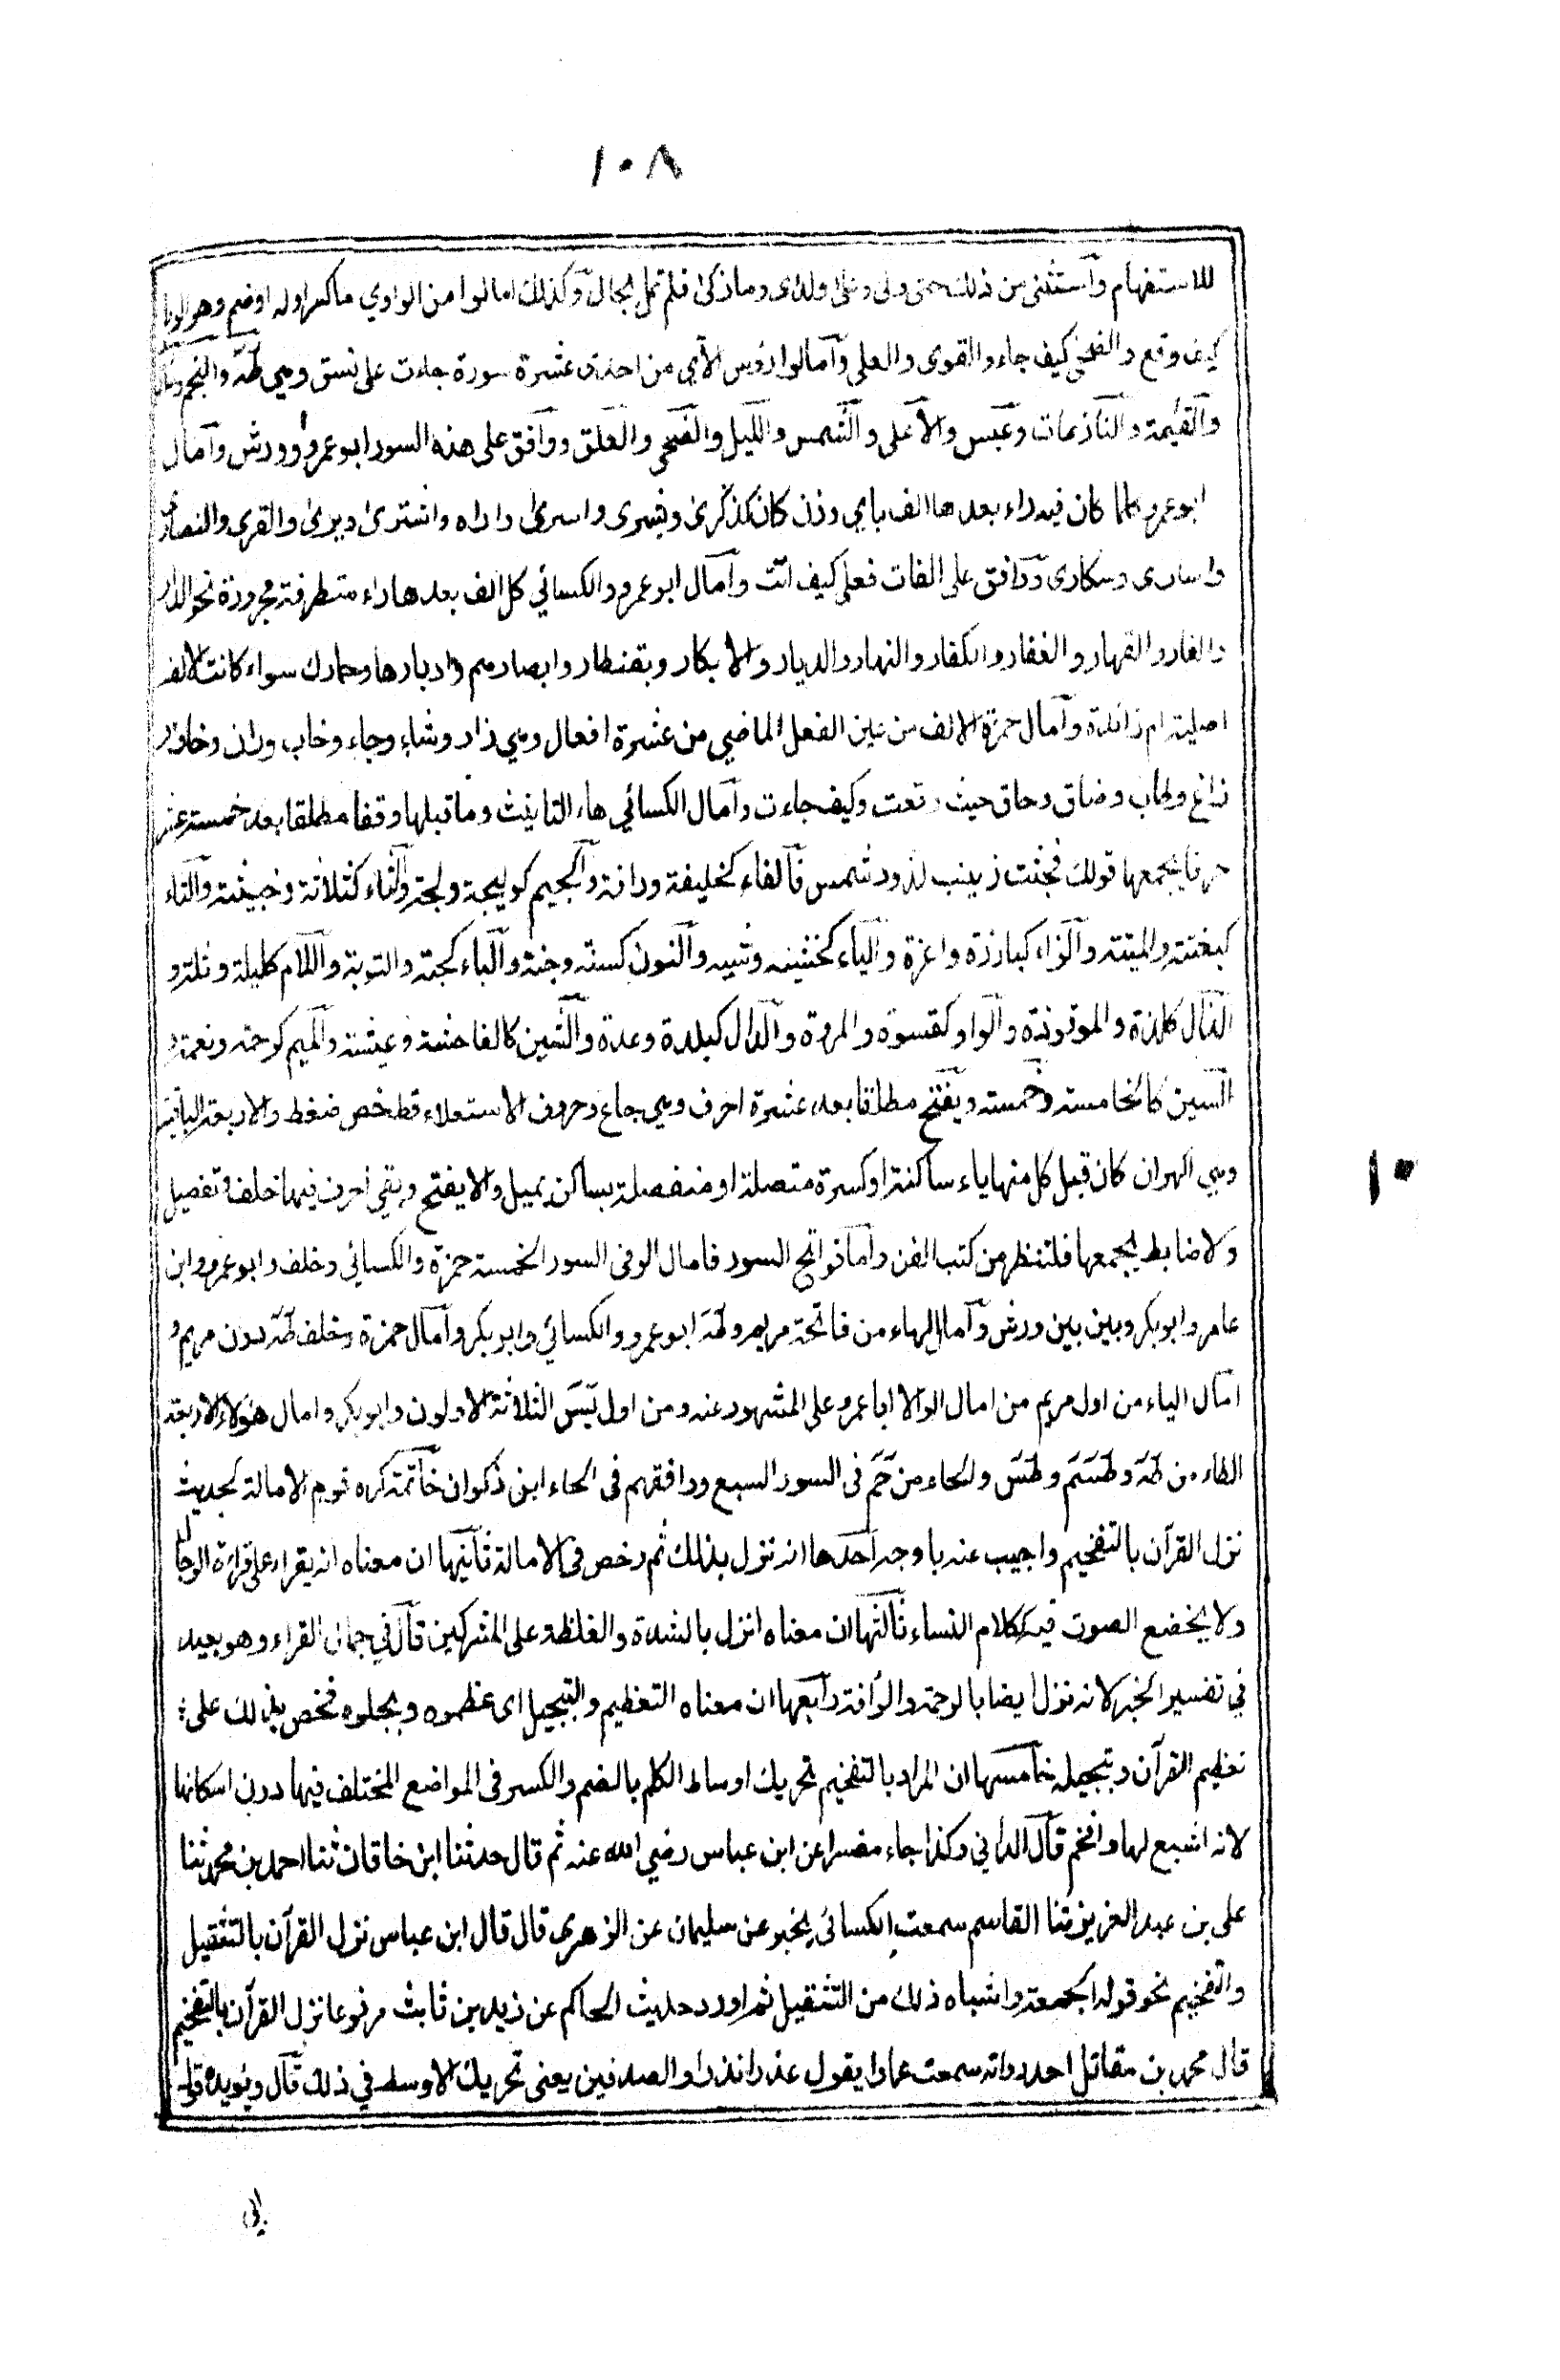 ١٠٨
للاستفهام وآستثنى من ذلك حتى ولى وعلى ولدى وما زكى فلم تمل بحال وكذلك امالوا من الواوي ما كسر اوله اوضم وهو الربا
كيف وقع والضحى كيف جاء والقوى والعلى وآمالوا رؤس الآي من احدى عشرة سورة جاءت على نسق وهي طه والنجم وسأل
والقيٰمة والنازعات وعبس والاعلى والشمس والليل والضحى والعلق ووافق على هذه السور ابو عمرو وورش وآمال
ابو عمرو كلما كان فيه راء بعدها الف باي وزن كان كذكرى وبشرى واسرى واراه واشترى ويرى والقرى والنصارى
واسارى وسكارى ووافق على الفات فعلى كيف اتت وآمال ابو عمرو والكسائي كل الف بعدها راء متطرفة مجرورة نحو الدار
والغار والقهار والغفار والكفار والنهار والديار والابكار وبقنطار وابصارهم وادبارها وحمارك سواء كانت الالف
اصلية ام زائدة وآمال حمزة الالف من عين الفعل الماضي من عشرة افعال وهي زاد وشاء وجاء وخاب وران وخاف و
زاغ وطاب وضاق وحاق حيث وقعت وكيف جاءت وآمال الكسائي هاء التانيث وما قبلها وقفا مطلقا بعد خمسة عشر
حرفا يجمعها قولك فجثت زينب لذود شمس فآلفاء كخليفة ورافة وآلجيم كوليجة ولجة وآلثاء كثلاثة وخبيثة وآلتاء
كبغتة والميتة وآلزاء كبارزة واعزة وآلياء كخشية وشيه وآلنون كسنة وجنة وآلباء كحبة والتوبة وآللام كليلة وثلة و
الذال كلذة والموقوذة وآلواو كقسوة والمروة وآلدال كبلدة وعدة وآلشين كالفاحشة وعيشة وآلميم كرحمة ونعمة و
آلسين كالخامسة وخمسة ويفتح مطلقا بعد عشرة احرف وهي جاع وحروف الاستعلاء قظ خص ضغط والاربعة الباقية
وهي اكهر ان كان قبل كل منها ياء ساكنة او كسرة متصلة او منفصلة بساكن يميل والا يفتح وبقي احرف فيها خلف وتفصيل
ولا ضابط يجمعها فلتنظر من كتب الفن وآما فواتح السور فامال الر فى السور الخمسة حمزة والكسائي وخلف وابو عمرو وابن
عامر وابو بكر وبين بين ورش وآمال الهاء من فاتحة مريم وطه ابو عمرو والكسائي وابو بكر وآمال حمزة وخلف طه دون مريم و
امآل الياء من اول مريم من امال الر الا ابا عمرو على المشهور عنه ومن اول يٓس الثلاثة الاولون وابو بكر وامال هؤلاء الاربعة
الطاء من طه وطسم وطس والحاء من حم فى السور السبع ووافقهم فى الحاء ابن ذكوان خاتمة كره قوم الامالة لحديث
نزل القرآن بالتفخيم واجيب عنه باوجه آحدها انه نزل بذلك ثم رخص فى الامالة ثآنيها ان معناه انه يقرا على قراءة الرجال
ولا يخضع الصوت فيه ككلام النساء ثآلثها ان معناه انزل بالشدة والغلظة على المشركين قآل في جمال القراء وهو بعيد
في تفسير الخبر لانه نزل ايضا بالرحمة والرأفة رآبعها ان معناه التعظيم والتبجيل اى عظموه وبجلوه فحض بذلك على
تعظيم القرآن وتبجيله خآمسها ان المراد بالتفخيم تحريك اوساط الكلم بالضم والكسر فى المواضع المختلف فيها دون اسكانها
لانه اشبع لها وافخم قآل الداني وكذا جاء مفسرا عن ابن عباس رضي الله عنه ثم قال حدثنا ابن خاقان ثنا احمد بن محمد ثنا
على بن عبد العزيز ثنا القاسم سمعت الكسائي يخبر عن سليمان عن الزهرى قال قال ابن عباس نزل القرآن بالتثقيل
والتفخيم نحو قوله الجمعة واشباه ذلك من التثقيل ثم اورد حديث الحاكم عن زيد بن ثابت مرفوعا نزل القرآن بالتفخيم
قال محمد بن مقاتل احد رواته سمعت عمارا يقول عذرا نذرا والصدفين يعنى تحريك الاوسط في ذلك قآل ويؤيده قول
١٠